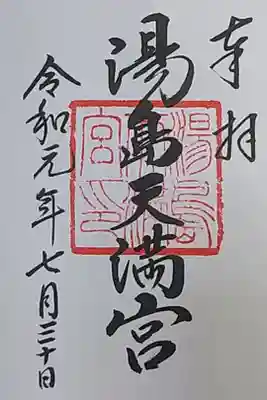 奉拝
湯島天満宮
令和元年七月三十日